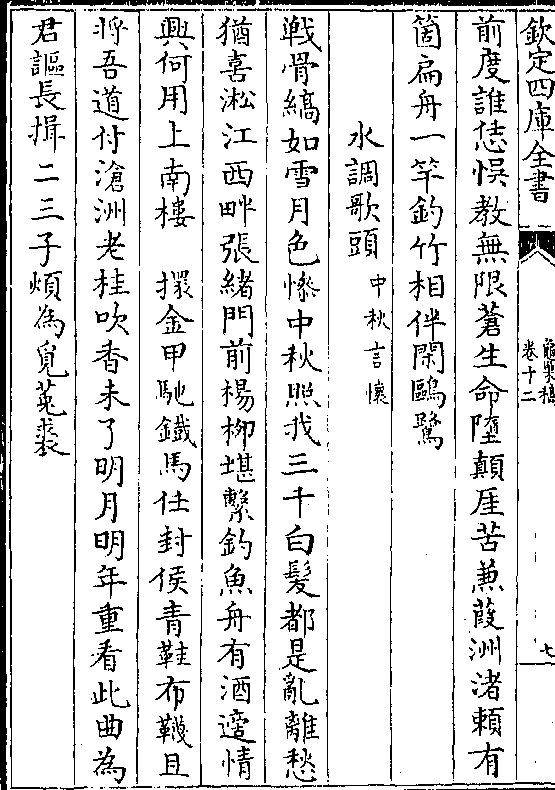 欽定四庫全書
龜巢稿
卷十二
七
前度誰恁悞教無限蒼生命墮顛厓苦蒹葭洲渚賴有
箇扁舟一竿釣竹相伴閑鷗鷺
水調歌頭 中秋言懷
戰骨縞如雪月色慘中秋照我三千白髮都是亂離愁
猶喜淞江西畔張緒門前楊柳堪繫釣魚舟有酒適情
興何用上南樓 擐金甲馳鐵馬任封侯青鞋布韈且
將吾道付滄洲老桂吹香未了明月明年重看此曲為
君謳長揖二三子煩為覓菟裘